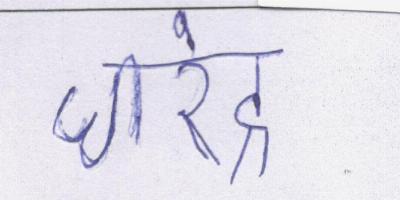 धारेंद्र